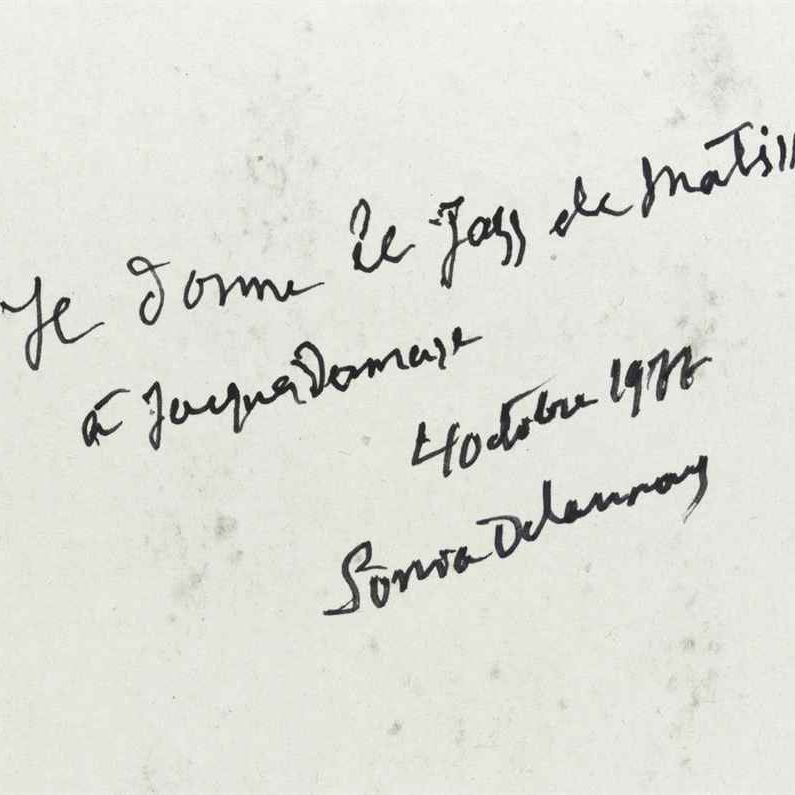 Je donne le Jazz de Matiss
à Jacques Damase
4 octobre 1977
Sonia Delaunay